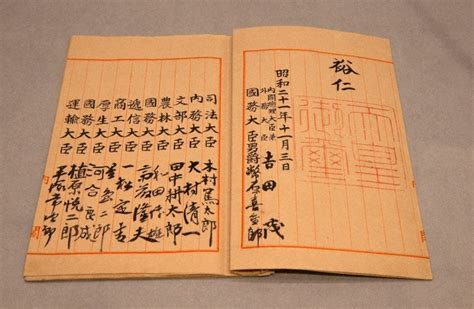 裕仁
天皇
御璽
昭和二十一年十一月三日
内閣総理大臣兼
外務大臣
吉田茂
國務大臣男爵幣原喜重郎
司法大臣 木村篤太郎
内務大臣 大村清一
文部大臣 田中耕太郎
農林大臣 和田博雄
國務大臣 斎藤隆夫
逓信大臣 一松定吉
商工大臣 星島二郎
厚生大臣 河合良成
國務大臣 植原悦二郎
運輸大臣 平塚常次郎